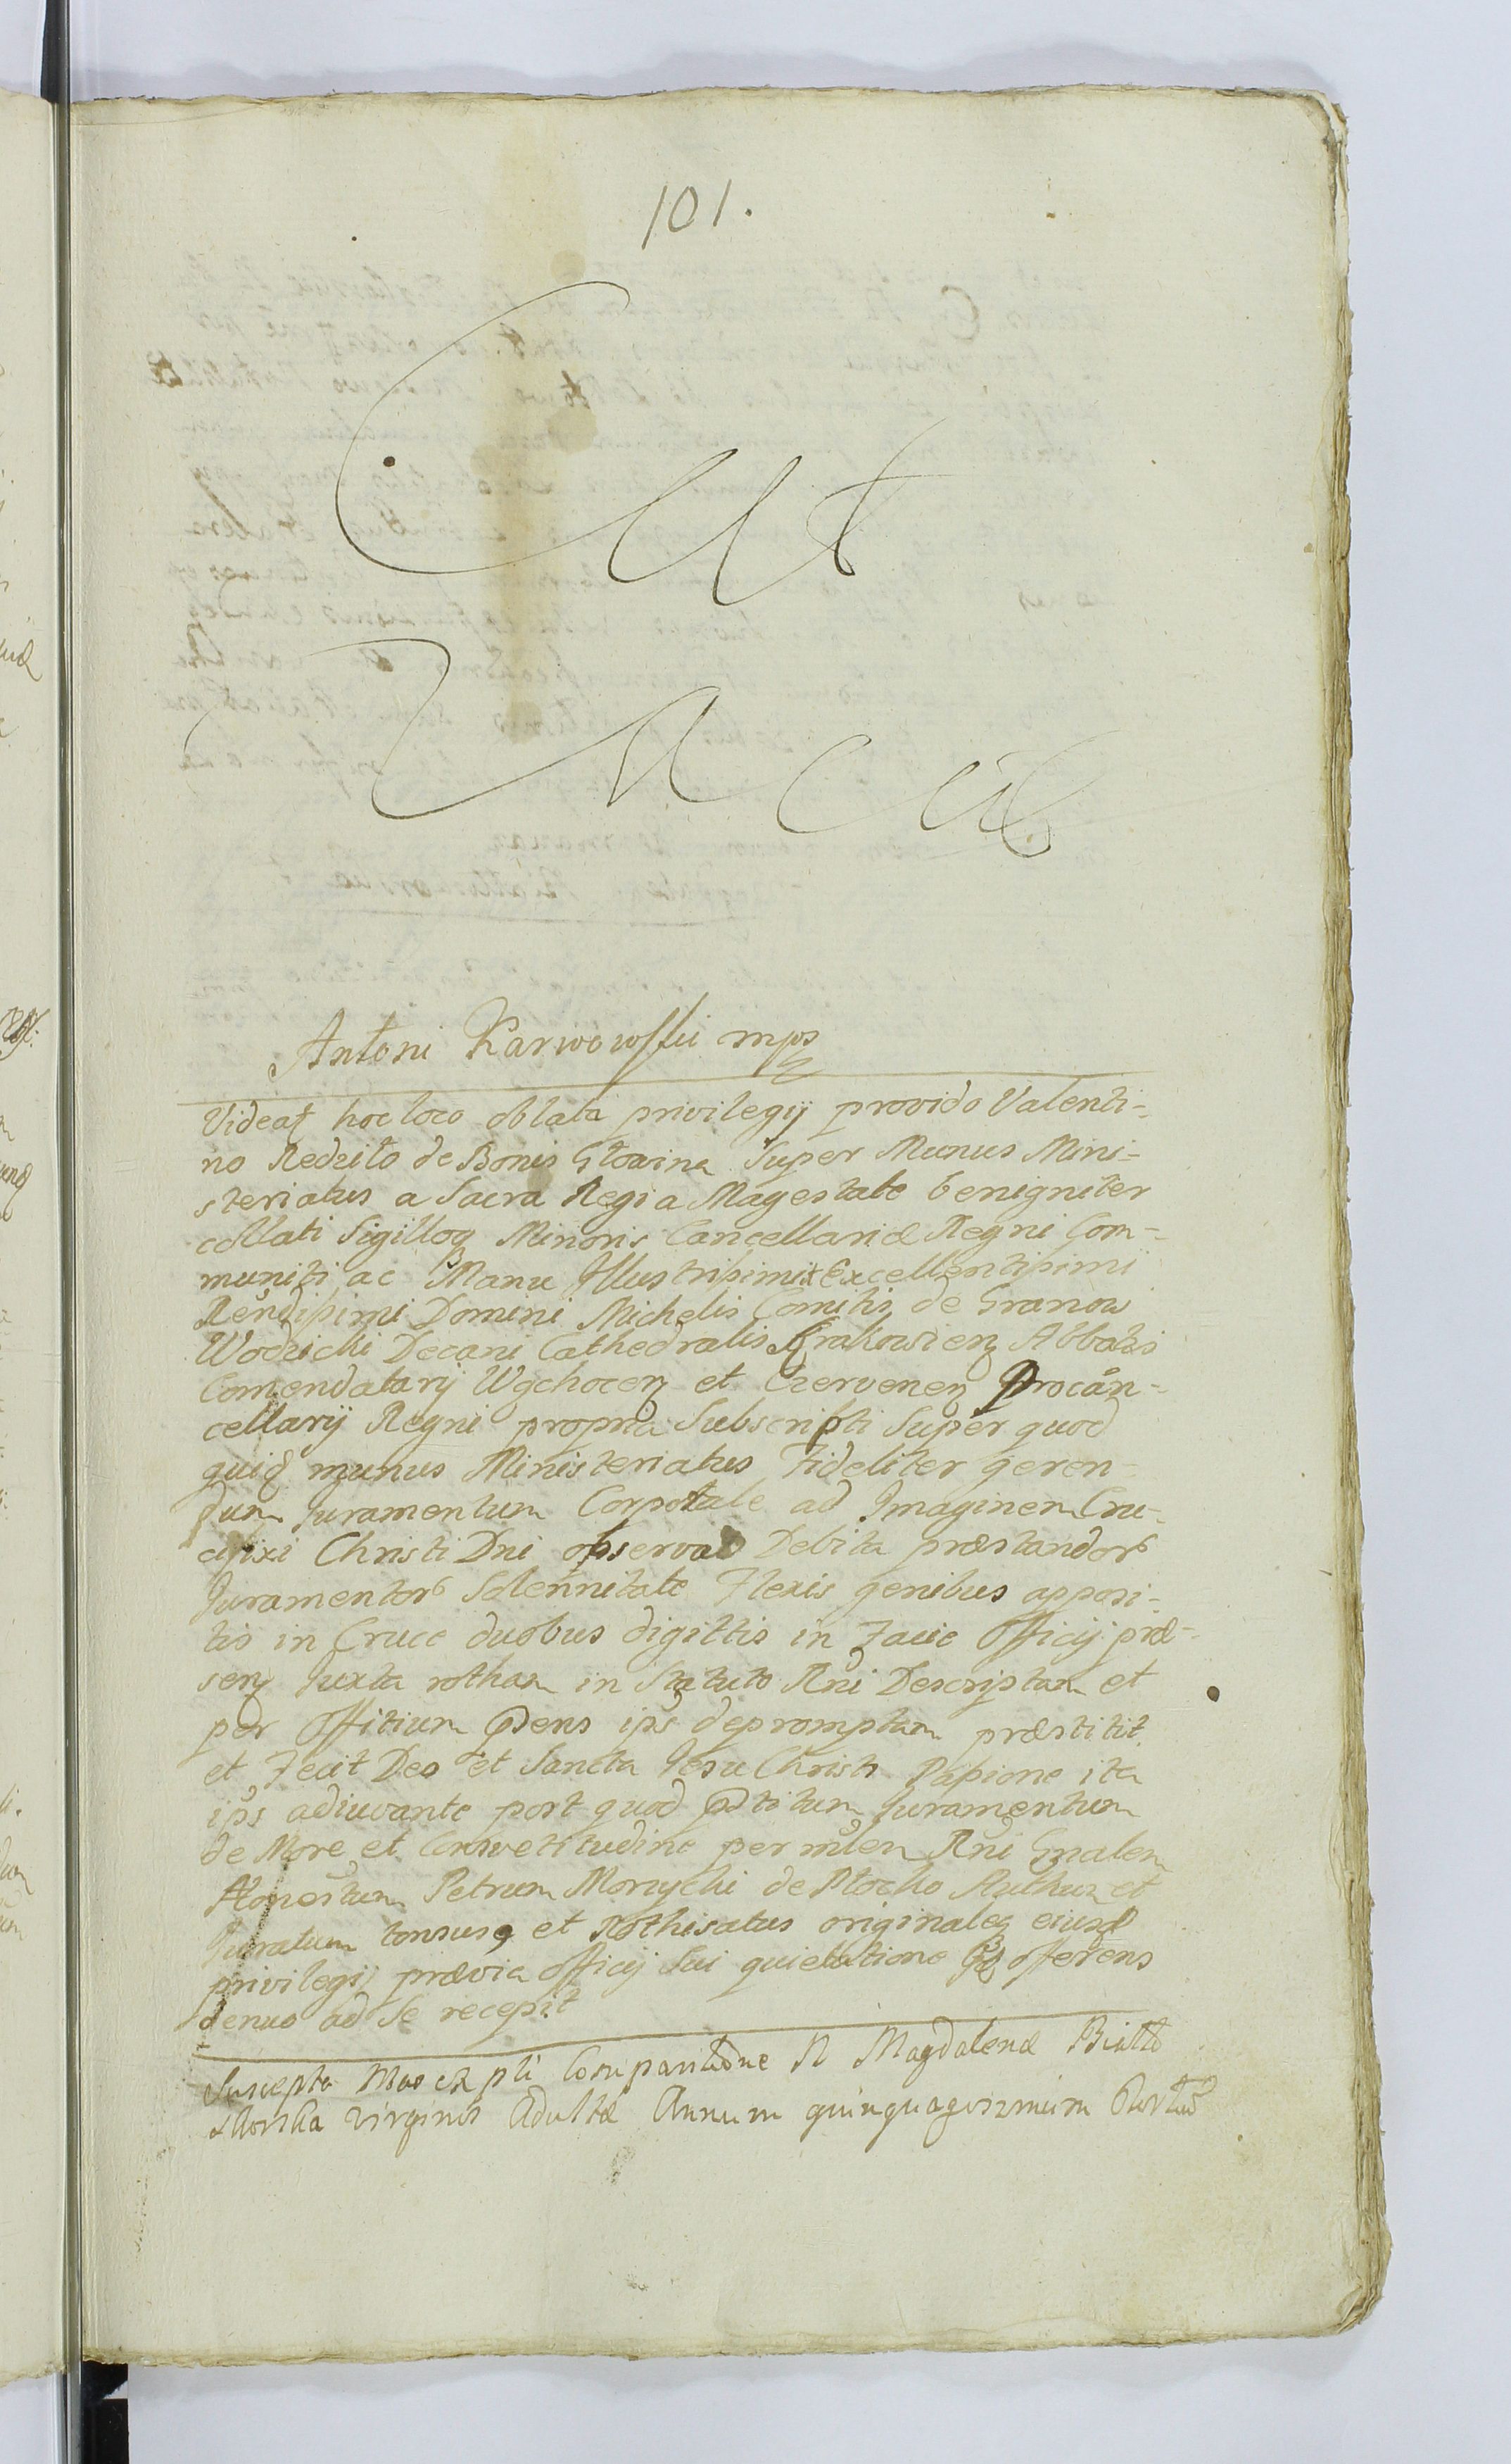 101.
Ut
In Actis
Antoni Karwowski mps
Videat hoc loco oblata privilegij provido Valenti-
no Redzito de Bonis Gtowina Super Munus Mini-
steriatus a Sacra Regia Magestate benigniter
collati Sigilloq Minoris Cancellariæ Regni Com-
muniti ac Manu Illustrissimi Excellentissimi
Rendissimi Domini Michelis Comitis de Granow
Wodzicki Decani Cathedralis Krakowien Abbatis
Comendatarij Wąchocen et Czervenen Procan-
cellarij Regni propria Subscripti Super quod
quid munus Ministeriatus Fideliter geren-
dum Juramentum Corporale ad Imaginem Cru-
cifixi Christi Dni observata Debita præstandor
Juramentor Solennitate Flexis genibus apposi-
tis in Cruce duobus digittis in Facie Officij præ-
sen Juxta rotham in Statuto Rni Descriptam et
per Officium pdens ips depromptam præstitit
et Fecit Deo et Sancta Jesu Christi Passione ita
ips adiuvante post quod pstitum Juramentum
de More et Conswetitudine per mlen Rni Gnalem
Honestum Petrum Morzycki de Plocko Authum et
Juratum tonsus et Rothisatus originaleq eiusd
privilegij prævia officij Sui quietatione offerens
denuo ad Se recepit
Suscepta Comparitione N Magdalenæ Biatto
skorska virginis Adultæ Annum quinquagesimum